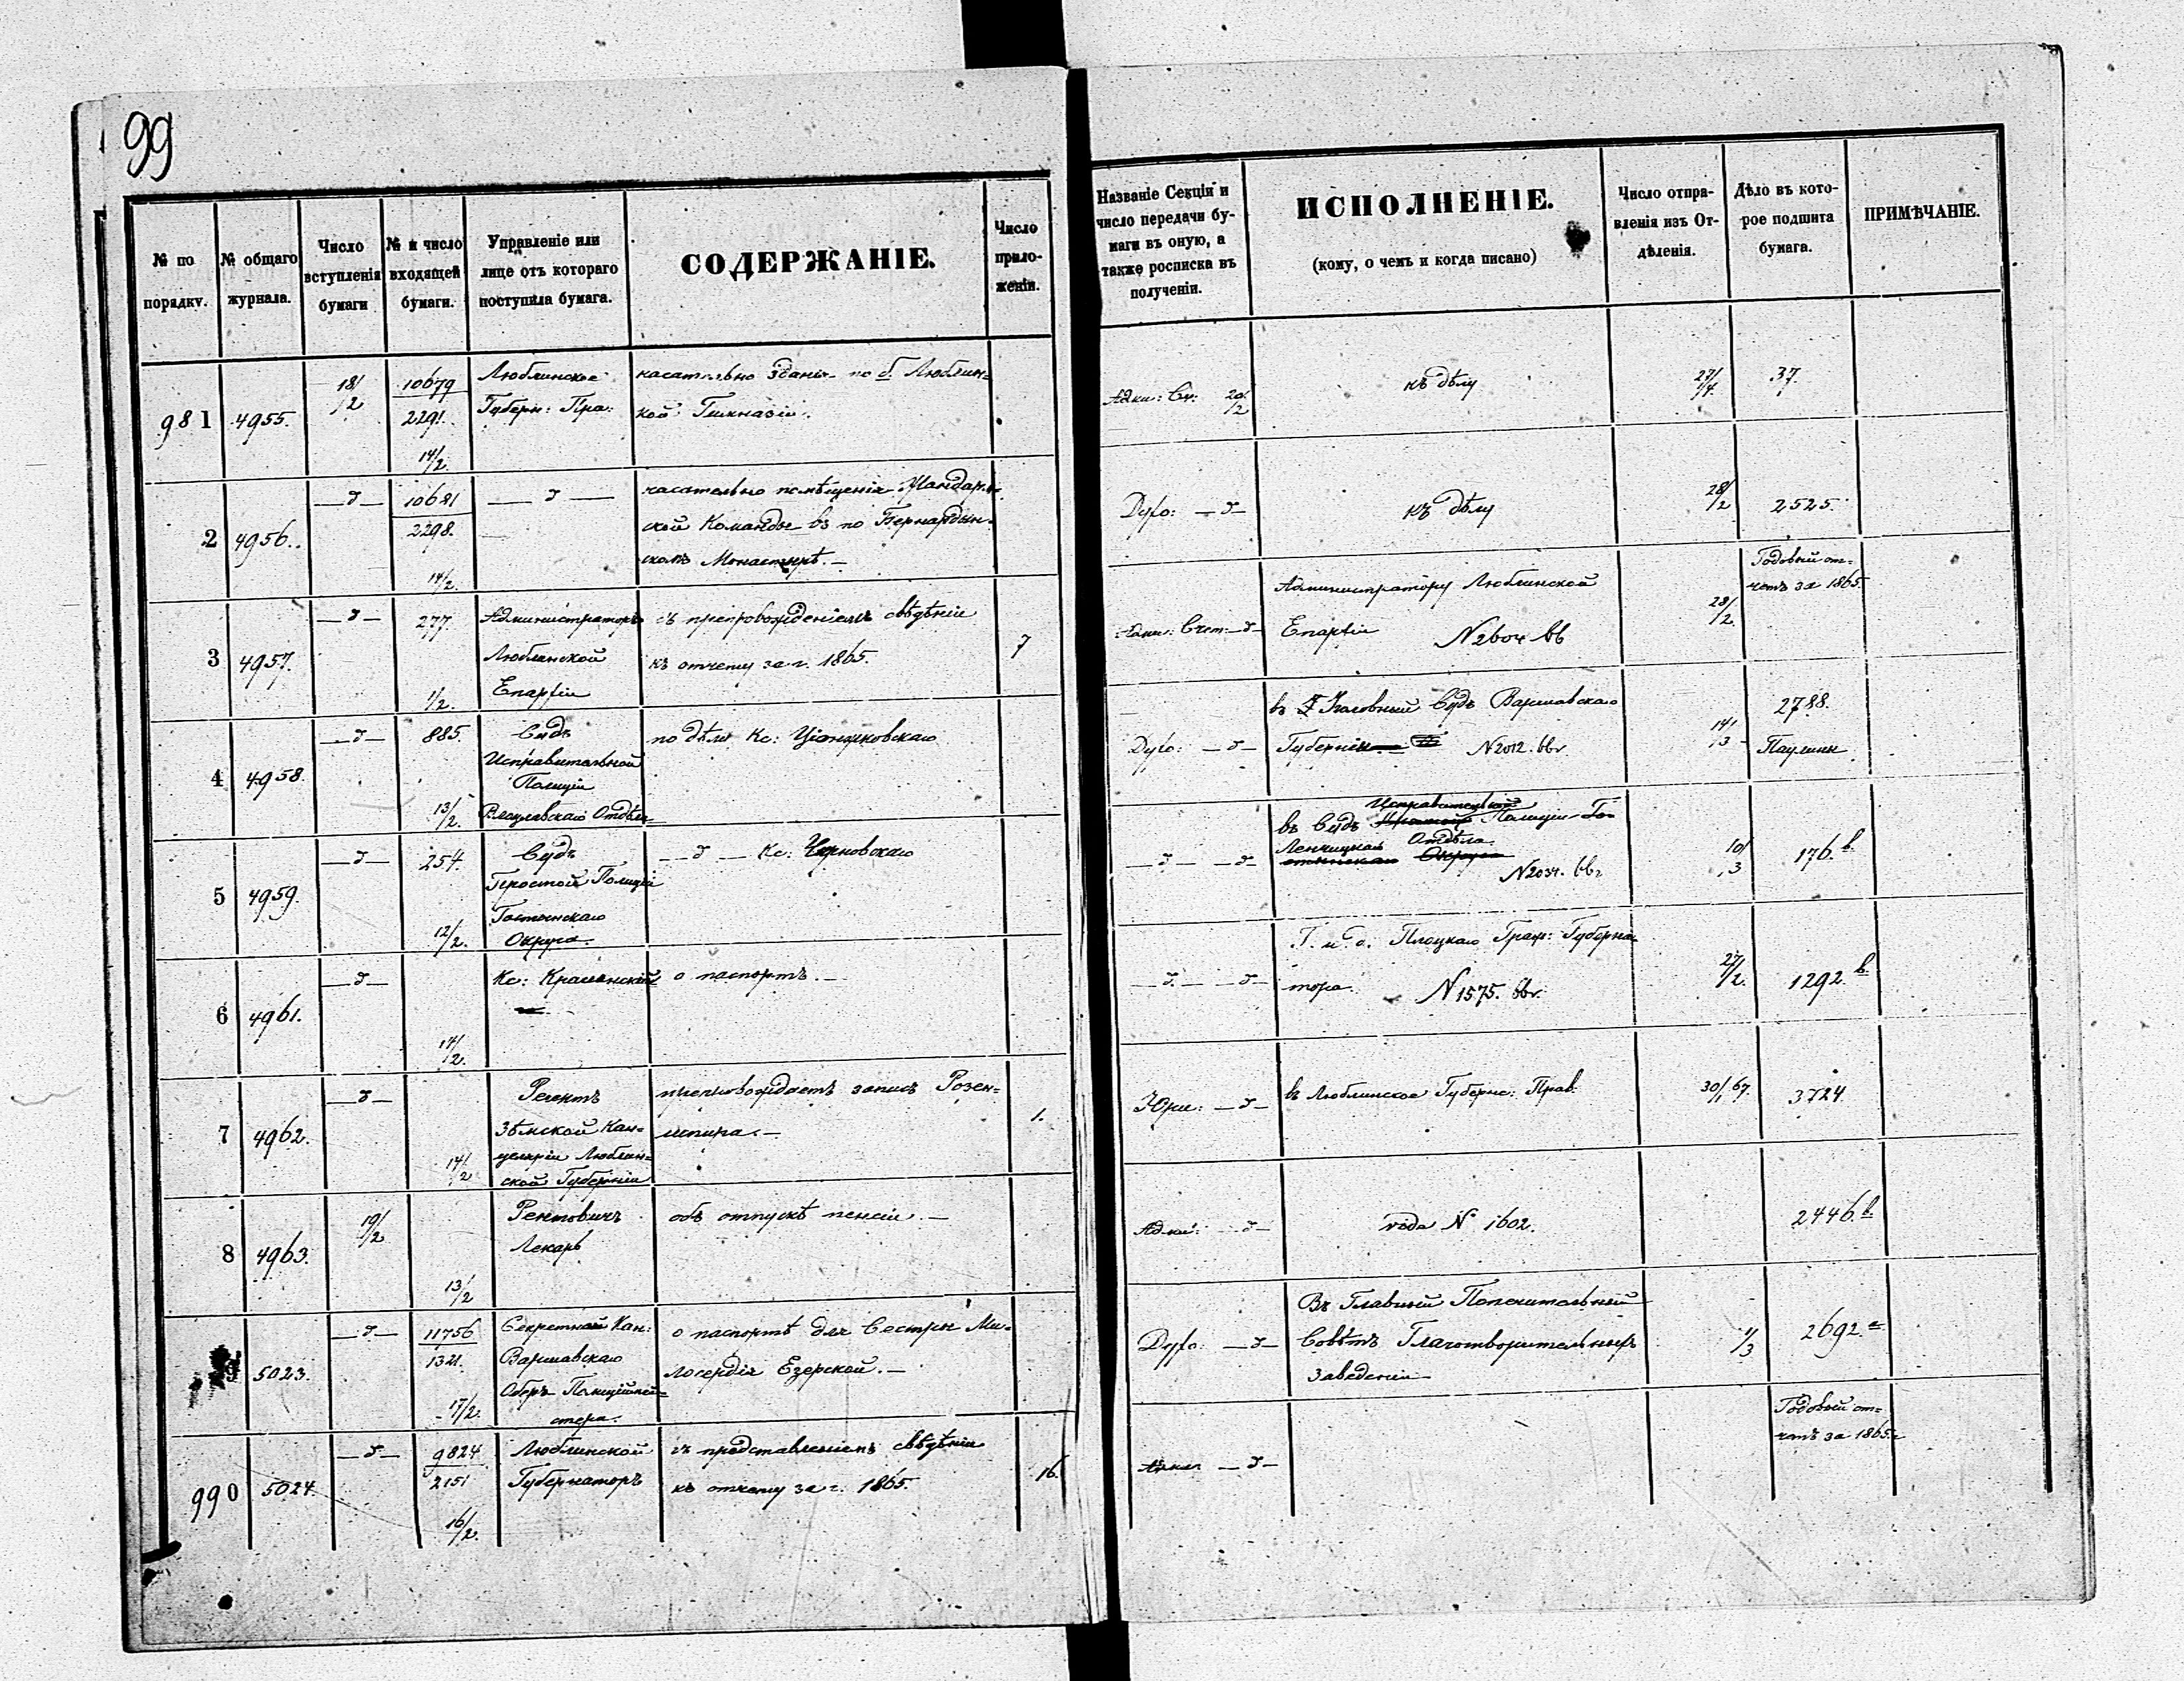 99
№ по порядку.
№ общаго журнала.
Число вступленія бумаги
№ и число входящей бумаги.
Управленіе или лице отъ котораго поступила бумага.
СОДЕРЖАНІЕ.
Число приложеній.
Названіе Секціи и число передачи бумаги въ оную, а также росписка въ полученіи.
ИСПОЛНЕНІЕ.
(кому, о чемъ и когда писано)
Число отправленія изъ Отдѣленія.
Дѣло въ которое подшита бумага.
ПРИМѢЧАНІЕ.
981 4955. 18/2 10679 2291. 14/2.
Люблинское
Губерн: Пра:
касательно зданія по б. Люблин=
кой Гимназіи.
20/2
къ дѣлу
37.
2 4956. —д— 10681 2298. 14/2. —д—
касательно помѣщенія Жандарм=
ской Команды въ по Бернардин=
скомъ Монастырѣ.—
Духо: —д—
къ дѣлу
28/2 2525.
3 4957. —д— 277. 1/2.
Администраторъ
Люблинской
Епархіи
съ препровожденіемъ свѣдѣній
къ отчету за г. 1865.
7
Администратору Люблинской
Епархіи N 2604
28/2.
Годовый от=
четъ за 1865.
4 4958. —д— 885. 13/2.
Судъ
Исправительной
Полиціи
Отдѣла
по дѣлу Кс:
Духо: —д—
Судъ Варшавскаго
Губерніи N 2012.
14/3
2788.
5 4959. —д— 254. 12/2.
Судъ
Простой Полиціи
Гостынскаго
Округа.
—д— Кс: Чарновскаго
—д— —д—
Исправительной
въ Судъ Полиціи
Отдѣла
N 2034.
10/3 176.
6 4961. —д— 14/2.
Кс:
о паспортѣ.—
—д— —д—
Г. и. о. Плоцкаго Граж: Губерна=
тора. N 1575.
27/2. 1292
7 4962. —д— 14/2
Регентъ
Зѣмской Кан=
целяріи Люблин=
ской Губерніи
препровождаетъ запись Розен=
1.
—д—
въ Люблинское Губерн: Прав:
30/1 67. 3724.
8 4963. 19/2 13/2
Лекарь
объ отпускѣ пенсіи.—
—д—
vide N 1602.
2446.
5023. —д— 11756 1321. 17/2.
Секретной Кан:
Варшавскаго
Оберъ Полиціймей=
стера.
о паспортѣ для Сестры Ми=
лосердія Езерской.—
Духо: —д—
Въ Главный Попечительный
Совѣтъ Благотворительныхъ
Заведеній
1/3 2692.
990 5024. —д— 9824 2151 16/2.
Люблинской
Губернаторъ
съ представленіемъ свѣдѣній
къ отчету за г. 1865.
16.
—д—
Годовый от=
четъ за 1865.